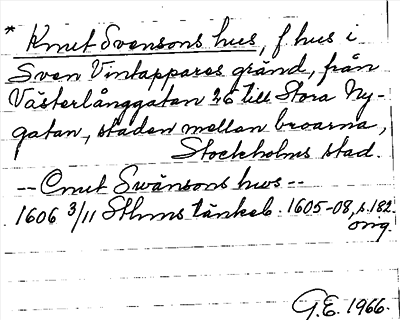 * Knut Svensons hus, f hus i
Sven Vintappares gränd, från
Västerlånggatan 26 till Stora Ny-
gatan, staden mellan broarna,
Stockholms stad.
-- Cnut Swänsons hws --
1606 3/11 Sthms tänkeb. 1605-08, s. 182.
orig.
G.E. 1966.